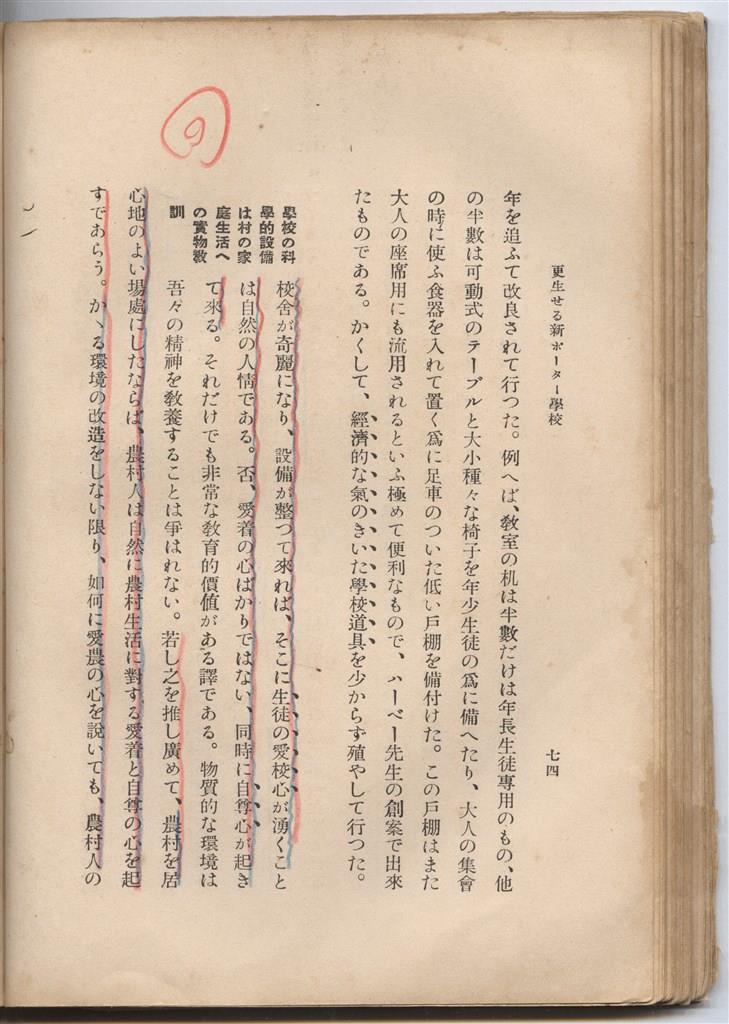 更生せる新ポーター學校
七四
年を追ふて改良されて行つた。例へば、教室の机は半數だけは年長生徒専用のもの、他
の半數は可動式のテーブルと大小種々な椅子を年少生徒の爲に備へたり、大人の集會
の時に使ふ食器を入れて置く爲に足車のついた低い戸棚を備付けた。この戸棚はまた
大人の座席用にも流用されるといふ極めて便利なもので、ハーベー先生の創案で出來
たものである。かくして、經濟的な氣のきいた學校道具を少からず殖やして行つた。
學校の科
學的設備
は村の家
庭生活へ
の實物教
訓
校舍が奇麗になり、設備が整つて來れば、そこに生徒の愛校心が湧くこと
は自然の人情である。否、愛着の心ばかりではない、同時に自尊心が起き
て來る。それだけでも非常な教育的價値がある譯である。物質的な環境は
吾々の精神を教養することは爭はれない。若し之を推し廣めて、農村を居
心地のよい場處にしたならば、農村人は自然に農村生活に對する愛着と自尊の心を起
すであらう。かゝる環境の改造をしない限り、如何に愛農の心を說いても、農村人の